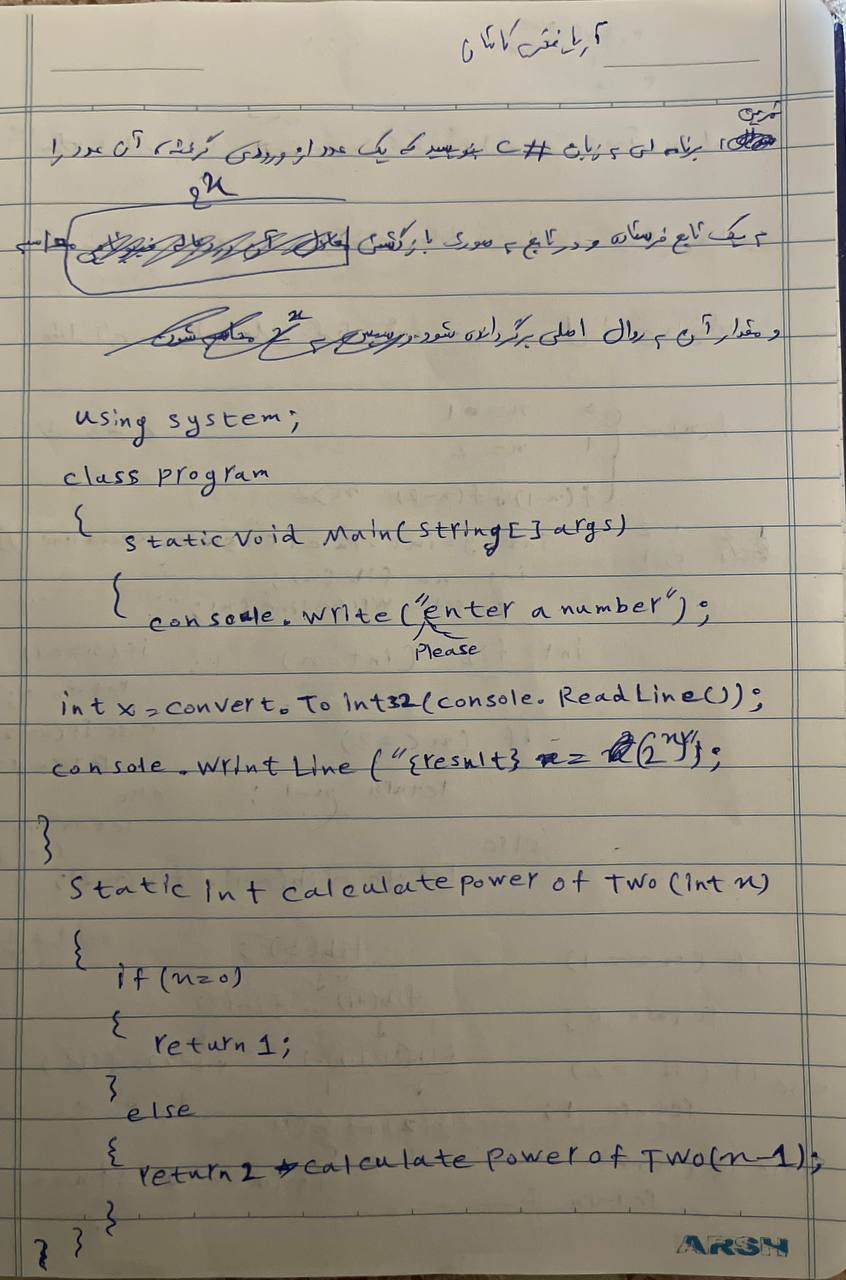 تمرین
برنامه ای به زبان C# بنویسید که یک عدد از ورودی گرفته، آن عدد را
2^x
به یک تابع فرستاده و در تابع به صورت بازگشتی محاسبه
و مقدار آن به روال اصلی برگردانده شود.
using system;
class program
{
static void Main(string[] args)
{
console.write("enter a number");
Please
int x = convert.To Int32(console.ReadLine());
console.WrintLine ("{result} = (2^n)");
}
Static int calculate power of Two (int n)
{
if (n=0)
{
return 1;
}
else
{
return 2 * calculate power of Two(n-1);
}
} }
ARSH